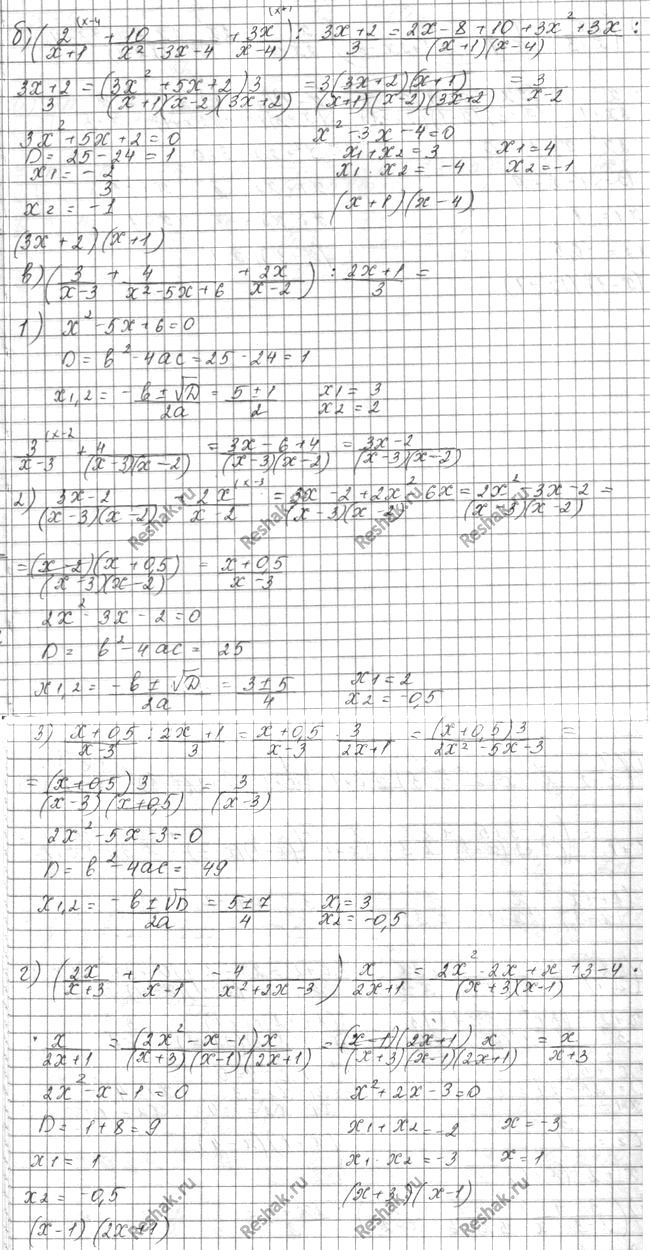 б) (2/(x+1) (x-4 + 10/(x² - 3x - 4) + 3x/(x-4)) : (3x+2)/3 = (2x - 8 + 10 + 3x² + 3x)/((x+1)(x-4)) :
(3x+2)/3 = (3x² + 5x + 2) 3/((x+1)(x-2)(3x+2)) = 3(3x+2)(x+1)/((x+1)(x-2)(3x+2)) = 3/(x-2)
3x² + 5x + 2 = 0
D = 25 - 24 = 1
x1 = -2/3
x2 = -1
(3x + 2)(x+1)
x² - 3x - 4 = 0
x1 + x2 = 3 x1 = 4
x1 · x2 = -4 x2 = -1
(x+1)(x-4)
в) (3/(x-3) + 4/(x² - 5x + 6) + 2x/(x-2)) : (2x+1)/3 =
1) x² - 5x + 6 = 0
D = b² - 4ac = 25 - 24 = 1
x1,2 = (-b ± √D)/2a = (5 ± 1)/2 x1 = 3 x2 = 2
3/(x-3) (x-2 + 4/((x-3)(x-2)) = (3x - 6 + 4)/((x-3)(x-2)) = (3x - 2)/((x-3)(x-2))
2) (3x - 2)/((x-3)(x-2)) + 2x/(x-2) (x-3 = (3x - 2 + 2x² - 6x)/((x-3)(x-2)) = (2x² - 3x - 2)/((x-3)(x-2)) =
= (x-2)(x+0,5)/((x-3)(x-2)) = (x+0,5)/(x-3)
2x² - 3x - 2 = 0
D = b² - 4ac = 25
x1,2 = (-b ± √D)/2a = (3 ± 5)/4 x1 = 2 x2 = -0,5
3) (x+0,5)/(x-3) : (2x+1)/3 = (x+0,5)/(x-3) · 3/(2x+1) = (x+0,5)3/(2x² - 5x - 3) =
= (x+0,5)3/((x-3)(x+0,5)) = 3/(x-3)
2x² - 5x - 3 = 0
D = b² - 4ac = 49
x1,2 = (-b ± √D)/2a = (5 ± 7)/4 x1 = 3 x2 = -0,5
г) (2x/(x+3) + 1/(x-1) - 4/(x² + 2x - 3)) x/(2x+1) = (2x² - 2x + x + 3 - 4)/((x+3)(x-1)) ·
· x/(2x+1) = (2x² - x - 1)x/((x+3)(x-1)(2x+1)) = (x-1)(2x+1) x/((x+3)(x-1)(2x+1)) = x/(x+3)
2x² - x - 1 = 0
D = 1 + 8 = 9
x1 = 1
x2 = -0,5
(x-1)(2x+1)
x² + 2x - 3 = 0
x1 + x2 = -2 x = -3
x1 · x2 = -3 x = 1
(x+3)(x-1)
Reshak.ru
Reshak.ru
Reshak.ru
Reshak.ru
Reshak.ru
Reshak.ru
Reshak.ru
Reshak.ru